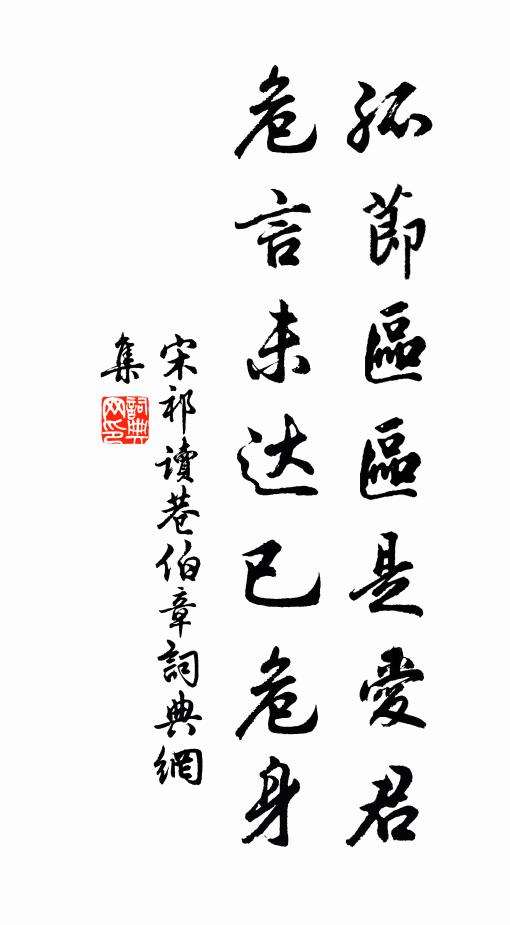 孤節區區是愛君
危言未达已危身
宋祁讀巷伯章詞典網
集
詞典網印